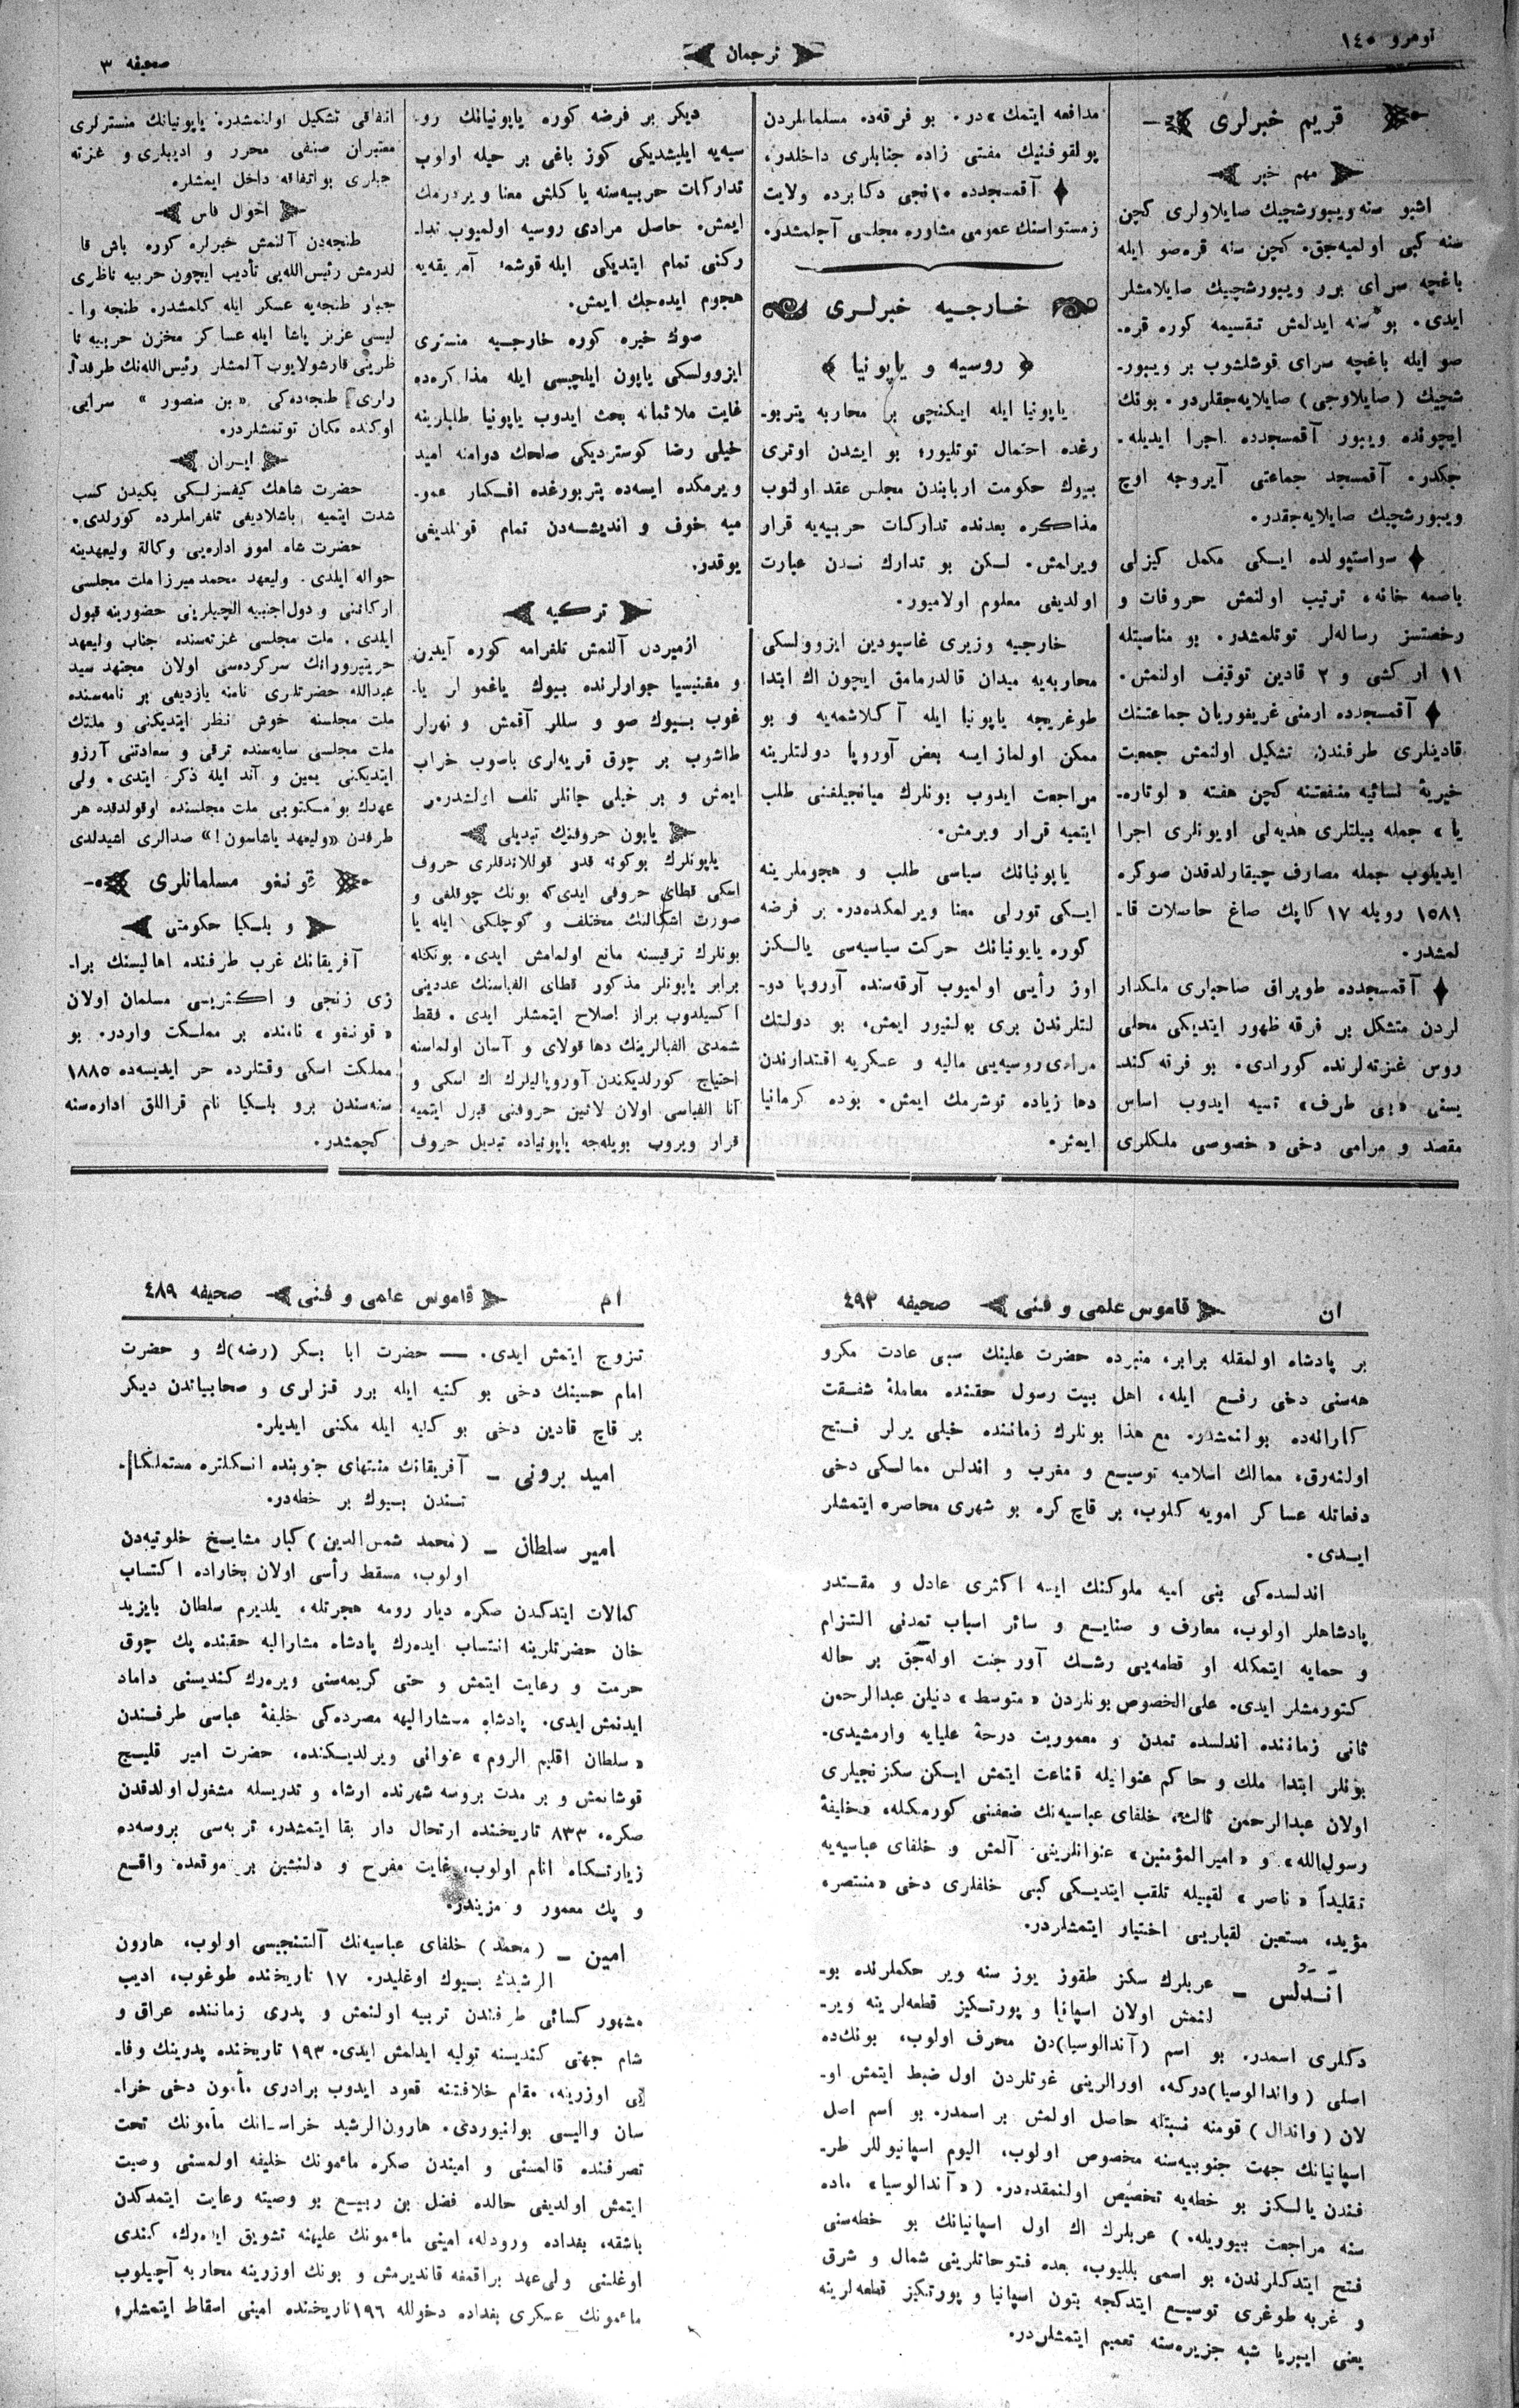 نومرو ١٤٥
ترجمان
صحیفه ٣
قریم خبرلری
مهم خبر
اشبو سنه ویبورشچیك صایلاولری کچن
سنه کبی اولمیه‌جق. کچن سنه قره‌صو ایله
باغچه سرای برر ویبورشچیك صایلامشلر
ایدی. بو سنه ایدلمش تقسیمه کوره قره‌
صو ایله باغچه سرای قوشلشوب بر ویبور-
شچیك (صایلاوجی) صایلایه‌جقلردر. بونك
ایچونده ویبور آقمسجدده اجرا ایدیله-
جکدر. آقمسجد جماعتی آیروجه اوچ
ویبورشچیك صایلایه‌جقدر.
سواستپولده ایکی مکمل کیزلی
باصمه خانه، ترتیب اولنمش حروفات و
رخصتسز رساله‌لر توتلمشدر. بو مناسبتله
١١ ار کشی و ٢ قادین توقیف اولنمش.
آقمسجدده ارمنی غریغوریان جماعتنك
قادینلری طرفندن تشکیل اولنمش جمعیت
خیریهٔ نسائیه منفعتنه کچن هفته « لوتاره-
یا » جمله بیلتلری هدیه‌لی اویونلری اجرا
ایدیلوب جمله مصارف چیقارلدقدن صوکره
١٥٨١ روبله ١٧ کاپك صاغ حاصلات قا-
لمشدر.
آقمسجدده طوپراق صاحبلری ملکدار
لردن متشکل بر فرقه ظهور ایتدیکی محلی
روس غزته‌لرنده کورلدی. بو فرقه کند
یسنی «بی طرف» تسمیه ایدوب اساس
مقصد و مرامی دخی « خصوصی ملکلری
مدافعه ایتمك » در. بو فرقه‌ده مسلمانلردن
پولقوفنیك مفتی زاده جنابلری داخلدر.
آقمسجدده ١٠نجی دکابرده ولایت
زمستواسنك عمومی مشاوره مجلسی آچلمشدر.
خارجیه خبرلری
﴿ روسیه و یاپونیا ﴾
یاپونیا ایله ایکنچی بر محاربه پتربو-
رغده احتمال توتلیور؛ بو ایشدن اوتری
بیوك حکومت اربابندن مجلس عقد اولنوب
مذاکره بعدنده تدارکات حربیه‌یه قرار
ویرلمش. لکن بو تدارك نه‌دن عبارت
اولدیغی معلوم اولامیور.
خارجیه وزیری غاسپودین ایزوولسکی
محاربه‌یه میدان قالدرمامق ایچون اك ابتدا
طوغریجه یاپونیا ایله آکلاشمه‌یه و بو
ممکن اولماز ایسه بعض آوروپا دولتلرینه
مراجعت ایدوب بونلرك میانجیلغنی طلب
ایتمیه قرار ویرمش.
یاپونیانك سیاسی طلب و هجوملرینه
ایکی تورلی معنا ویرلمکده‌در. بر فرضه
کوره یاپونیانك حرکت سیاسیه‌سی یالکز
اوز رأیی اولمیوب آرقه‌سنده آوروپا دو-
لتلرندن بری بولنیور ایمش، بو دولتك
مرادی روسیه‌یی مالیه و عسکریه اقتدارندن
دها زیاده توشرمك ایمش. بوده کرمانیا
ایمش.
دیکر بر فرضه کوره یاپونیانك رو-
سیه‌یه ایلیشدیکی کوز باغی بر حیله اولوب
تدارکات حربیه‌سنه یاکلش معنا ویردرمك
ایمش. حاصل مرادی روسیه اولمیوب تدا-
رکنی تمام ایتدیکی ایله قوشمه آمریقه‌یه
هجوم ایده‌جك ایمش.
صوك خبره کوره خارجیه منستری
ایزوولسکی یاپون ایلچیسی ایله مذاکره‌ده
غایت ملائمانه بحث ایدوب یاپونیا طلبلرینه
خیلی رضا کوستردیکی صلحك دوامنه امید
ویرمکده ایسه‌ده پتربورغده افکار عمو-
میه خوف و اندیشه‌دن تمام قوتلدیغی
یوقدر.
ترکیه
ازمیردن آلنمش تلغرامه کوره آیدین
و مغنیسیا جوارلرنده بیوك یاغمورلر یا-
غوب بیوك صو و سللر آقمش و نهرلر
طاشوب بر چوق قریه‌لری باصوب خراب
ایتمش و بر خیلی جانلر تلف اولمشدر.
یاپون حروفینك تبدیلی
یاپونلرك بوکونه قدر قوللاندقلری حروف
اسکی قطای حروفی ایدی‌که بونك چوقلغی و
صورت اشکالنك مختلف و کوچلکی ایله یا
بونلرك ترقیسنه مانع اولمامش ایدی. بونکله
برابر یاپونلر مذکور قطای الفباسنك عددینی
اکسیلدوب براز اصلاح ایتمشلر ایدی. فقط
شمدی الفبالرینك دها قولای و آسان اولماسنه
احتیاج کورلدیکندن آوروپالیلرك اك اسکی و
آنا الفباسی اولان لاتین حروفنی قبول ایتمیه
قرار ویروب بویله‌جه یاپونیاده تبدیل حروف
اتفاقی تشکیل اولنمشدر. یاپونیانك منسترلری
معتبران صنفی محرر و ادیبلری و غزته
جیلری بو اتفاقه داخل ایمشلر.
احوال فاس
طنجه‌دن آلنمش خبرلره کوره باش قا
لدرمش رئیس‌الله‌یی تأدیب ایچون حربیه ناظری
جبار طنجه‌یه عسکر ایله کلمشدر. طنجه وا-
لیسی عزیز پاشا ایله عساکر مخزن حربیه نا
ظرینی قارشولایوب آلمشلر رئیس‌الله‌نك طرفدا-
راری طنجه‌ده‌کی « بن منصور » سرایی
اوکنده مکان توتمشلردر.
ایران
حضرت شاهك کیفسزلکی یکیدن کسب
شدت ایتمیه باشلادیغی تلغراملرده کورلدی.
حضرت شاه امور اداره‌یی وکالة ولیعهدینه
حواله ایلدی. ولیعهد محمد میرزا ملت مجلسی
ارکاننی و دول اجنبیه ایلچیلرینی حضورینه قبول
ایلدی. ملت مجلسی غزته‌سنده جناب ولیعهد
حریتپرورانك سرکرده‌سی اولان مجتهد سید
عبدالله حضرتلری نامنه یازدیغی بر نامه‌سنده
ملت مجلسنه خوش نظر ایتدیکنی و ملتك
ملت مجلسی سایه‌سنده ترقی و سعادتنی آرزو
ایتدیکنی یمین و آند ایله ذکر ایتدی. ولی
عهدك بو مکتوبی ملت مجلسنده اوقولدقده هر
طرفدن «ولیعهد یاشاسون!» صدالری اشیدلدی
قونغو مسلمانلری
و بلکیا حکومتی
آفریقانك غرب طرفنده اهالیسنك برا-
زی زنجی و اکثریسی مسلمان اولان
« قونغو » نامنده بر مملکت واردر. بو
مملکت اسکی وقتلرده حر ایدیسه‌ده ١٨٨٥
سنه‌سندن برو بلکیا نام قراللق اداره‌سنه
کچمشدر.
ان
قاموس علمی و فنی
صحیفه ٤٩٣
بر پادشاه اولمقله برابر، منبرده حضرت علینك سبی عادت مکرو
هه‌سنی دخی رفع ایله، اهل بیت رسول حقنده معاملهٔ شفقت
کارانه‌ده بولنمشدر. مع هذا بونلرك زماننده خیلی یرلر فتح
اولنه‌رق، ممالك اسلامیه توسیع و مغرب و اندلس ممالکی دخی
دفعاتله عساکر امویه کلوب، بر قاچ کره بو شهری محاصره ایتمشلر
ایدی.
اندلسده‌کی بنی امیه ملوکنك ایسه اکثری عادل و مقتدر
پادشاهلر اولوب، معارف و صنایع و سائر اسباب تمدنی التزام
و حمایه ایتمکله او قطعه‌یی رشك آور جنت اوله‌جق بر حاله
کتورمشلر ایدی. علی‌الخصوص بونلردن « متوسط » دنیلن عبدالرحمن
ثانی زماننده اندلسده تمدن و معموریت درجهٔ علیایه وارمشیدی.
بونلر ابتدا ملك و حاکم عنوانیله قناعت ایتمش ایسکن سکزنجیلری
اولان عبدالرحمن ثالث، خلفای عباسیه‌نك ضعفنی کورمکله، «خلیفهٔ
رسول‌الله» و «امیرالمؤمنین» عنوانلرینی آلمش و خلفای عباسیه‌یه
تقلیداً « ناصر » لقبیله تلقب ایتدیکی کبی خلفلری دخی «منتصر،
مؤید، مستعین لقبلرینی اختیار ایتمشلردر.
اندلس - عربلرك سکز طقوز یوز سنه ویر حکملرنده بو-
لنمش اولان اسپانیا و پورتکیز قطعه‌لرینه ویر-
دکلری اسمدر. بو اسم (آندالوسیا)دن محرف اولوب، بونك‌ده
اصلی (واندالوسیا)درکه، اورالرینی غوتلردن اول ضبط ایتمش او-
لان (واندال) قومنه نسبتله حاصل اولمش بر اسمدر. بو اسم اصل
اسپانیانك جهت جنوبیه‌سنه مخصوص اولوب، الیوم اسپانیوللر طر-
فندن یالکز بو خطه‌یه تخصیص اولنمقده‌در. (« آندالوسیا » ماده
سنه مراجعت بیوریله.) عربلرك اك اول اسپانیانك بو خطه‌سنی
فتح ایتدکلرندن، بو اسمی بللیوب، بعده فتوحاتلرینی شمال و شرق
و غربه طوغری توسیع ایتدکجه بتون اسپانیا و پورتکیز قطعه‌لرینه
یعنی ایبریا شبه جزیره‌سنه تعمیم ایتمشلردر.
ام
قاموس علمی و فنی
صحیفه ٤٨٩
تزوج ایتمش ایدی. — حضرت ابا بکر (رضه)ك و حضرت
امام حسینك دخی بو کنیه ایله برر قزلری و صحابیاتدن دیکر
بر قاچ قادین دخی بو کنیه ایله مکنی ایدیلر.
امید برونی - آفریقانك منتهای جنوبنده انکلتره مستملکا-
تندن بیوك بر خطه‌در.
امیر سلطان - (محمد شمس‌الدین) کبار مشایخ خلوتیه‌دن
اولوب، مسقط رأسی اولان بخاراده اکتساب
کمالات ایتدکدن صکره دیار رومه هجرتله، یلدیرم سلطان بایزید
خان حضرتلرینه انتساب ایده‌رك پادشاه مشارالیه حقنده پك چوق
حرمت و رعایت ایتمش و حتی کریمه‌سنی ویره‌رك کندیسنی داماد
ایدنمش ایدی. پادشاه مشارالیهه مصرده‌کی خلیفهٔ عباسی طرفندن
« سلطان اقلیم الروم » عنوانی ویرلدیکنده، حضرت امیر قلیج
قوشانمش و بر مدت بروسه شهرنده ارشاد و تدریسله مشغول اولدقدن
صکره، ٨٣٣ تاریخنده ارتحال دار بقا ایتمشدر، تربه‌سی بروسه‌ده
زیارتکاه انام اولوب، غایت مفرح و دلنشین بر موقعده واقع
و پك معمور و مزیندر.
امین - (محمد) خلفای عباسیه‌نك آلتنجیسی اولوب، هارون
الرشیدك بیوك اوغلیدر. ١٧ تاریخنده طوغوب، ادیب
مشهور کسائی طرفندن تربیه اولنمش و پدری زماننده عراق و
شام جهتی کندیسنه تولیه ایدلمش ایدی. ١٩٣ تاریخنده پدرینك وفا-
تی اوزرینه، مقام خلافتنه قعود ایدوب برادری مأمون دخی خرا-
سان والیسی بولنیوردی. هارون‌الرشید خراسانك مأمونك تحت
تصرفنده قالمسنی و امیندن صکره مأمونك خلیفه اولمسنی وصیت
ایتمش اولدیغی حالده فضل بن ربیع بو وصیته رعایت ایتمدکدن
باشقه، بغداده ورودله، امینی مأمونك علیهنه تشویق ایده‌رك، کندی
اوغلنی ولی‌عهد براقمغه قاندیرمش و بونك اوزرینه محاربه آچیلوب
مأمونك عسکری بغداده دخولله ١٩٦تاریخنده امینی اسقاط ایتمشلر؛